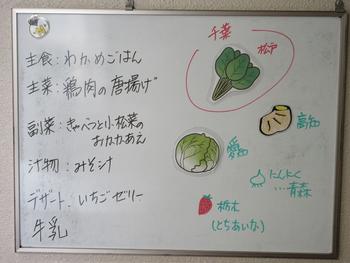 主食：わかめごはん
主菜：鶏肉の唐揚げ
副菜：きゃべつと小松菜の
おかかあえ
汁物：みそ汁
デザート：いちごゼリー
牛乳
千葉
松戸
高知
愛知
にんにく
…青森
栃木
(とちあいか)